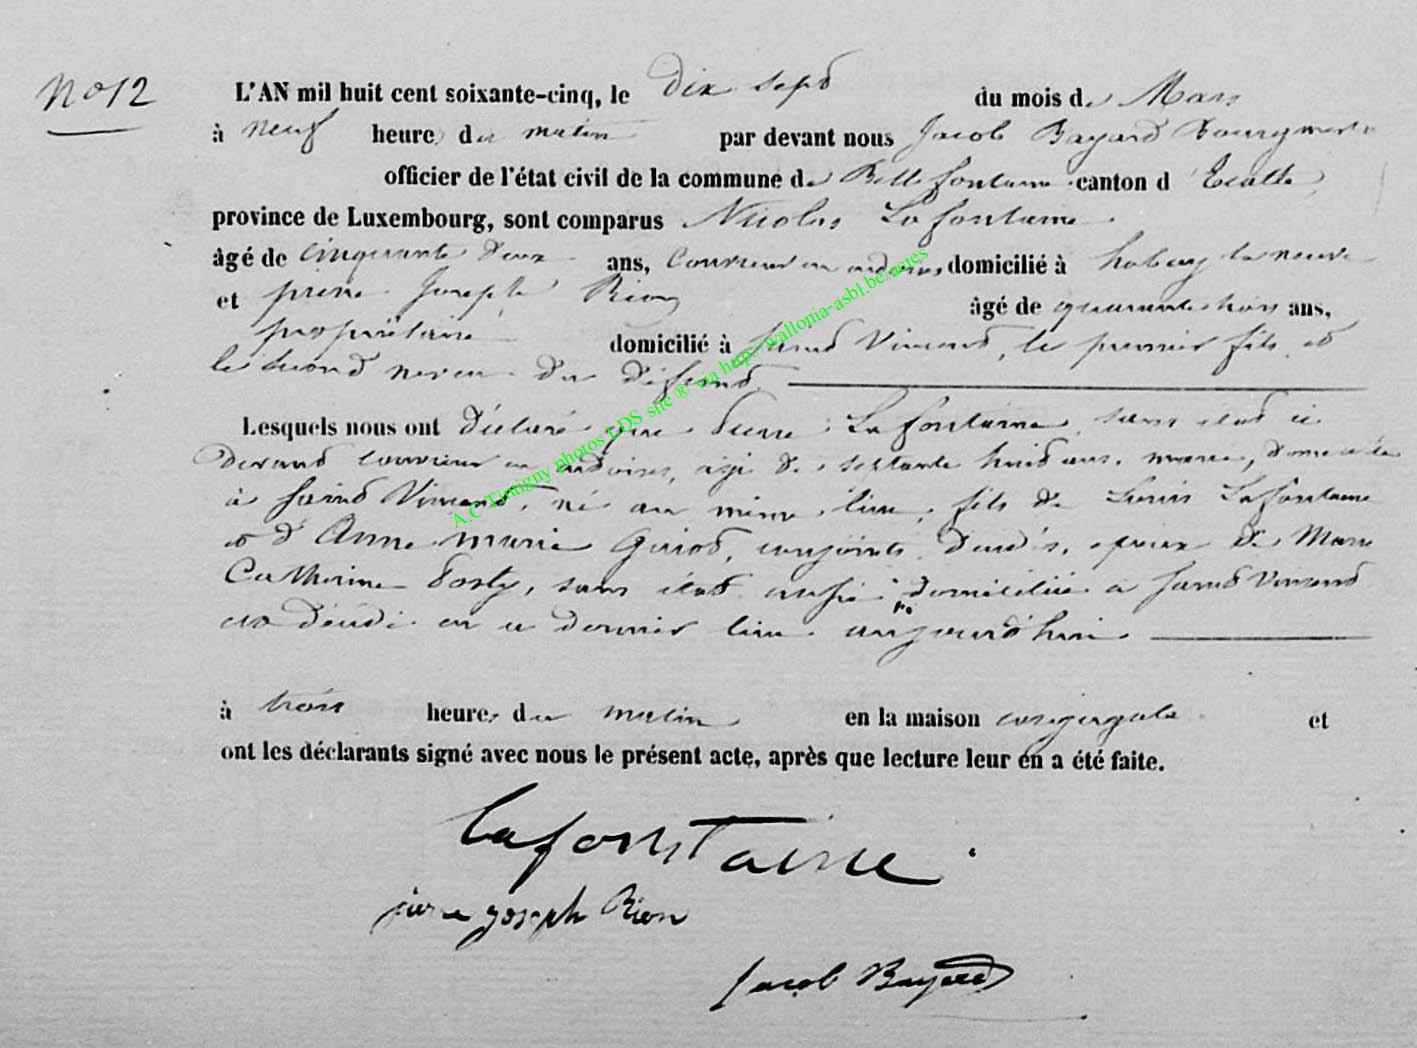 No 12
L'AN mil huit cent soixante-cinq, le dix sept du mois de Mars
à neuf heures du matin par devant nous Jacob Bayard Bourgmestre
officier de l'état civil de la commune de Bellefontaine canton d'Etalle
province de Luxembourg, sont comparus Nicolas Lafontaine
âgé de cinquante deux ans, couvreur en ardoises domicilié à habay la neuve
et pierre Joseph Rion âgé de quarante trois ans,
propriétaire domicilié à Saint Vincent, le premier fils et
le second neveu du défunt
Lesquels nous ont déclaré que Pierre Lafontaine, sans etat ci
devant couvreur en ardoises, agé de septante huit ans, marié, domicilié
à Saint Vincent, né au même lieu, fils de Louis Lafontaine
et d'Anne Marie conjoints décédés, epoux de Marie
Catherine sans état aussi domiciliée a Saint Vincent
est décédé en ce dernier lieu aujourd'hui
à trois heures du matin en la maison conjugale et
ont les déclarants signé avec nous le présent acte, après que lecture leur en a été faite.
Lafontaine
pierre joseph Rion
Jacob Bayard
A.C Tintigny photos LDS site ® via http://wallonia-asbl.be/actes